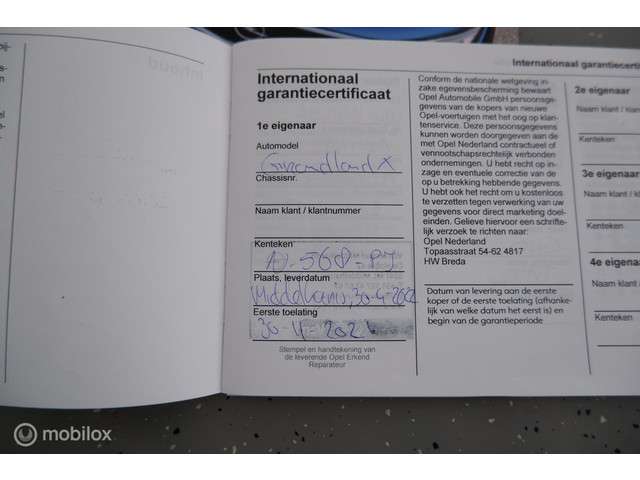 Internationaal garantiecerti
Internationaal
garantiecertificaat
1e eigenaar
Automodel
Grandland X
Chassisnr.
Naam klant / klantnummer
Kenteken
Plaats, leverdatum
Eerste toelating
Stempel en handtekening van
de leverende Opel Erkend
Reparateur
Conform de nationale wetgeving in-
zake egevensbescherming bewaart
Opel Automobile GmbH persoonsge-
gevens van de kopers van nieuwe
Opel-voertuigen met het oog op klan-
tenservice. Deze persoonsgegevens
kunnen worden doorgegeven aan de
met Opel Nederland contractueel of
vennootschapsrechtelijk verbonden
ondernemingen. U hebt recht op in-
zage en eventuele correctie van de
op u betrekking hebbende gegevens.
U hebt ook het recht om u kosteloos
te verzetten tegen verwerking van uw
gegevens voor direct marketing doel-
einden. Gelieve hiervoor een schrifte-
lijk verzoek te richten naar:
Opel Nederland
Topaasstraat 54-62 4817
HW Breda
Datum van levering aan de eerste
koper of de eerste toelating (afhanke-
lijk van welke datum het eerst is) en
begin van de garantieperiode
2e eigenaar
Naam klant / klan
Kenteken
3e eigenaar
Naam klant / k
Kenteken
4e eigenaa
Naam klant
Kenteken
mobilox